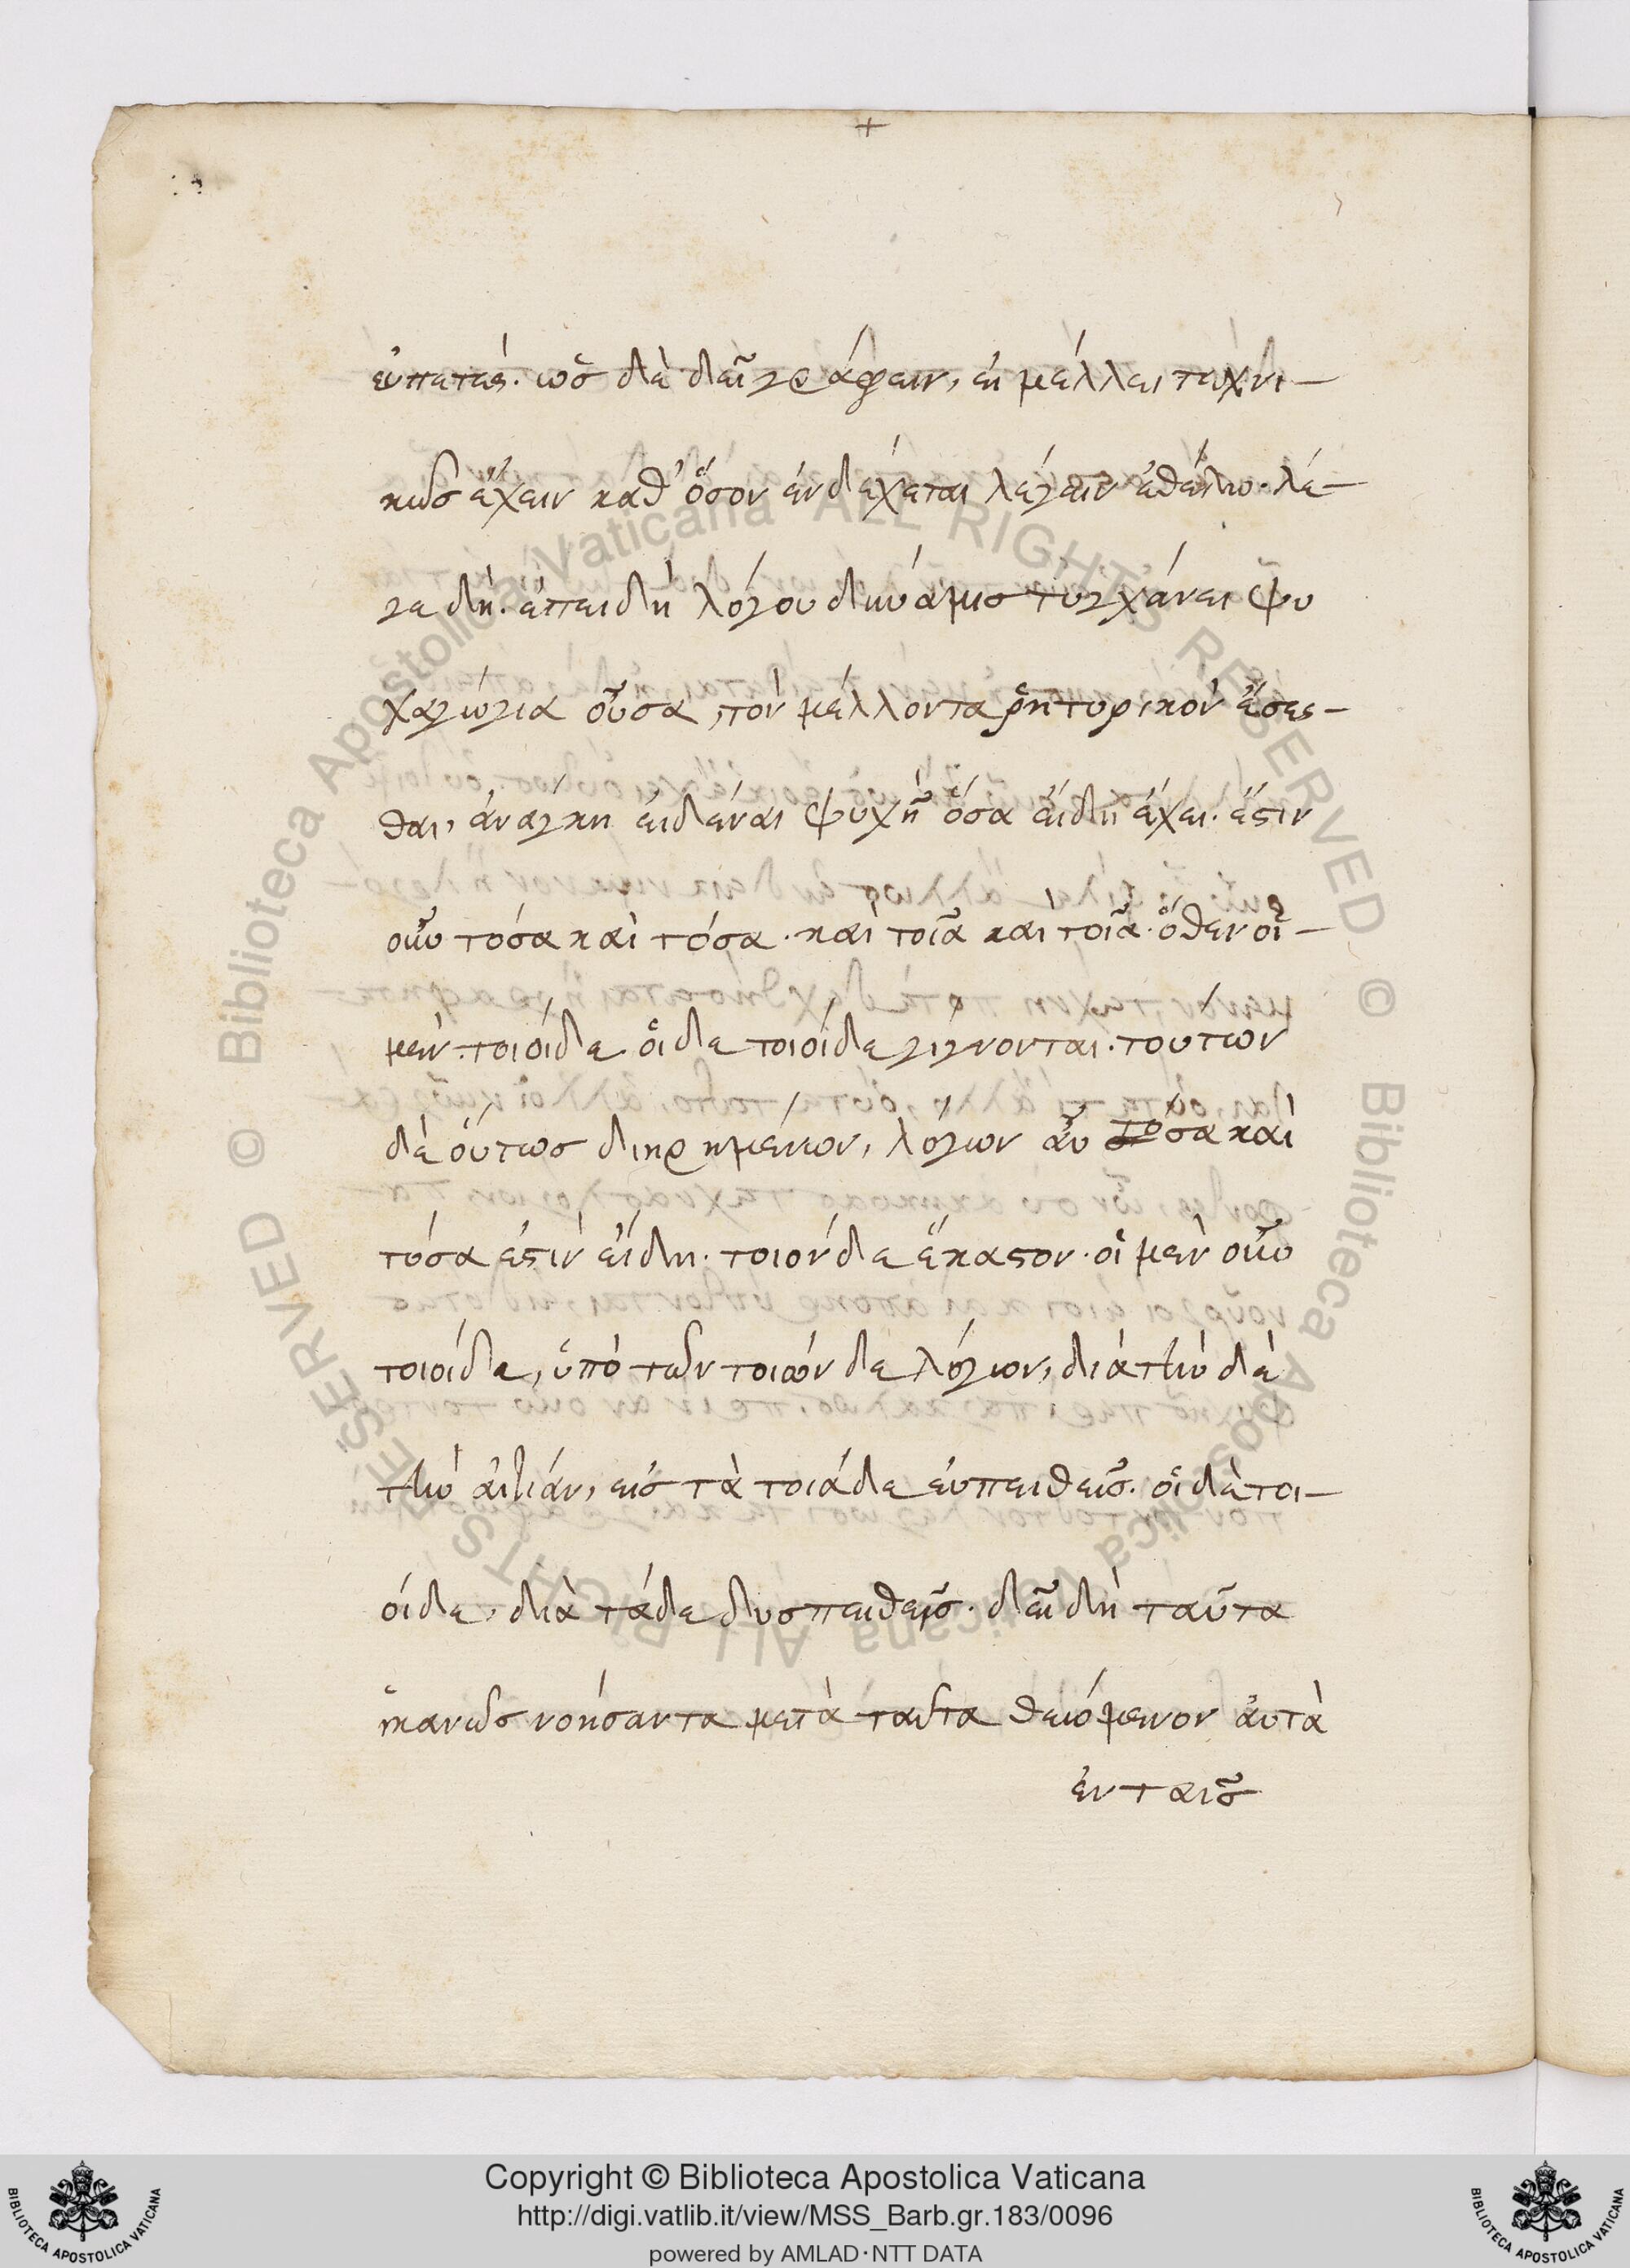 +
εὐπετές. ὡς δὲ δεῖ γράφειν, εἰ μέλλει τεχνι-
κῶς ἔχειν καθ' ὅσον ἐνδέχεται λέγειν ἐθέλω. λέ-
γε δή. ἐπειδὴ λόγου δύναμις τυγχάνει ψυ
χαγωγία οὖσα, τὸν μέλλοντα ῥητορικὸν ἔσεσ-
θαι, ἀνάγκη εἰδέναι ψυχὴ ὅσα εἴδη ἔχει. ἔστιν
οὖν τόσα καὶ τόσα. καὶ τοῖα καὶ τοῖα. ὅθεν οἱ-
μὲν τοιοίδε. οἱ δὲ τοιοίδε γίγνονται. τούτων
δὲ οὕτως διηρημένων, λόγων αὖ τόσα καὶ
τόσα ἐστὶν εἴδη. τοιόνδε ἕκαστον. οἱ μὲν οὖν
τοιοίδε, ὑπὸ τῶν τοιῶνδε λόγων, διὰ τὴν δὲ
τὴν αἰτίαν, εἰς τὰ τοιάδε εὐπειθεῖς. οἱ δὲ τοι-
οίδε, διὰ τάδε δυσπειθεῖς. δεῖ δὴ ταῦτα
ἱκανῶς νοήσαντα μετὰ ταῦτα θεώμενον αὐτὰ
ἐν ταῖς
© Biblioteca Apostolica Vaticana ALL RIGHTS RESERVED © Biblioteca Apostolica Vaticana ALL RIGHTS RESERVED
Copyright © Biblioteca Apostolica Vaticana
http://digi.vatlib.it/view/MSS_Barb.gr.183/0096
powered by AMLAD·NTT DATA
BIBLIOTECA APOSTOLICA VATICANA
BIBLIOTECA APOSTOLICA VATICANA